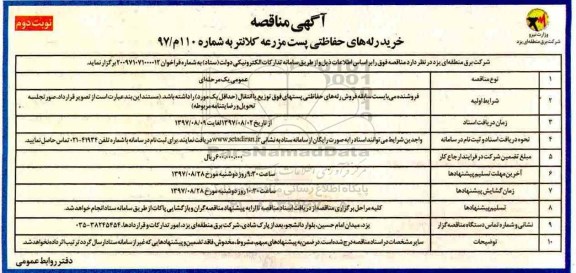 آگهی مناقصه
نوبت دوم
خرید رله‌های حفاظتی پست مزرعه کلانتر به شماره ۱۱۰م/۹۷
وزارت نیرو
شرکت برق منطقه‌ای یزد
شرکت برق منطقه‌ای یزد در نظر دارد مناقصه فوق را بر اساس اطلاعات ذیل و از طریق سامانه تدارکات الکترونیکی دولت (ستاد) به شماره فراخوان ۲۰۰۹۷۱۰۷۱۰۰۰۰۱۲ برگزار نماید.
۱ نوع مناقصه عمومی یک مرحله‌ای
۲ شرایط اولیه فروشنده می‌بایست سابقه فروش رله‌های حفاظتی پستهای فوق توزیع یا انتقال (حداقل یک مورد) را داشته باشد. (مستند این بند عبارت است از تصویر قرارداد، صورتجلسه
تحویل و رضایتنامه مربوطه)
۳ زمان دریافت اسناد از تاریخ ۱۳۹۷/۰۸/۰۲ لغایت ۱۳۹۷/۰۸/۰۹
۴ نحوه دریافت اسناد و ثبت نام در سامانه واجدین شرایط می‌توانند اسناد را به صورت رایگان از سامانه ستاد به نشانی www.setadiran.ir دریافت نمایند. برای ثبت نام در سامانه با شماره تلفن ۴۱۹۳۴-۰۲۱ تماس حاصل نمایید.
۵ مبلغ تضمین شرکت در فرایند ارجاع کار ریال
۶ آخرین مهلت تسلیم پیشنهادها ساعت ۹:۳۰ روز دوشنبه مورخ ۱۳۹۷/۰۸/۲۸
۷ زمان گشایش پیشنهادها ساعت ۱۰:۳۰ روز دوشنبه مورخ ۱۳۹۷/۰۸/۲۸
۸ تسلیم پیشنهادها کلیه مراحل برگزاری مناقصه از دریافت اسناد مناقصه تا ارایه پیشنهاد مناقصه‌گران و بازگشایی پاکات از طریق سامانه ستاد انجام خواهد شد.
۹ نشانی و شماره تماس دستگاه مناقصه‌گزار یزد، میدان امام حسین، بلوار دانشجو، بعد از پارک شادی، شرکت برق منطقه‌ای یزد، امور تدارکات و قراردادها، ۳۸۲۴۵۴۵۴-۰۳۵
۱۰ توضیحات سایر مشخصات در اسناد مناقصه درج شده است. در ضمن به پیشنهادهای مبهم، مشروط، مخدوش، فاقد تضمین و پیشنهادهایی که غیر از سامانه ستاد ارسال گردد ترتیب اثر داده نخواهد شد.
دفتر روابط عمومی